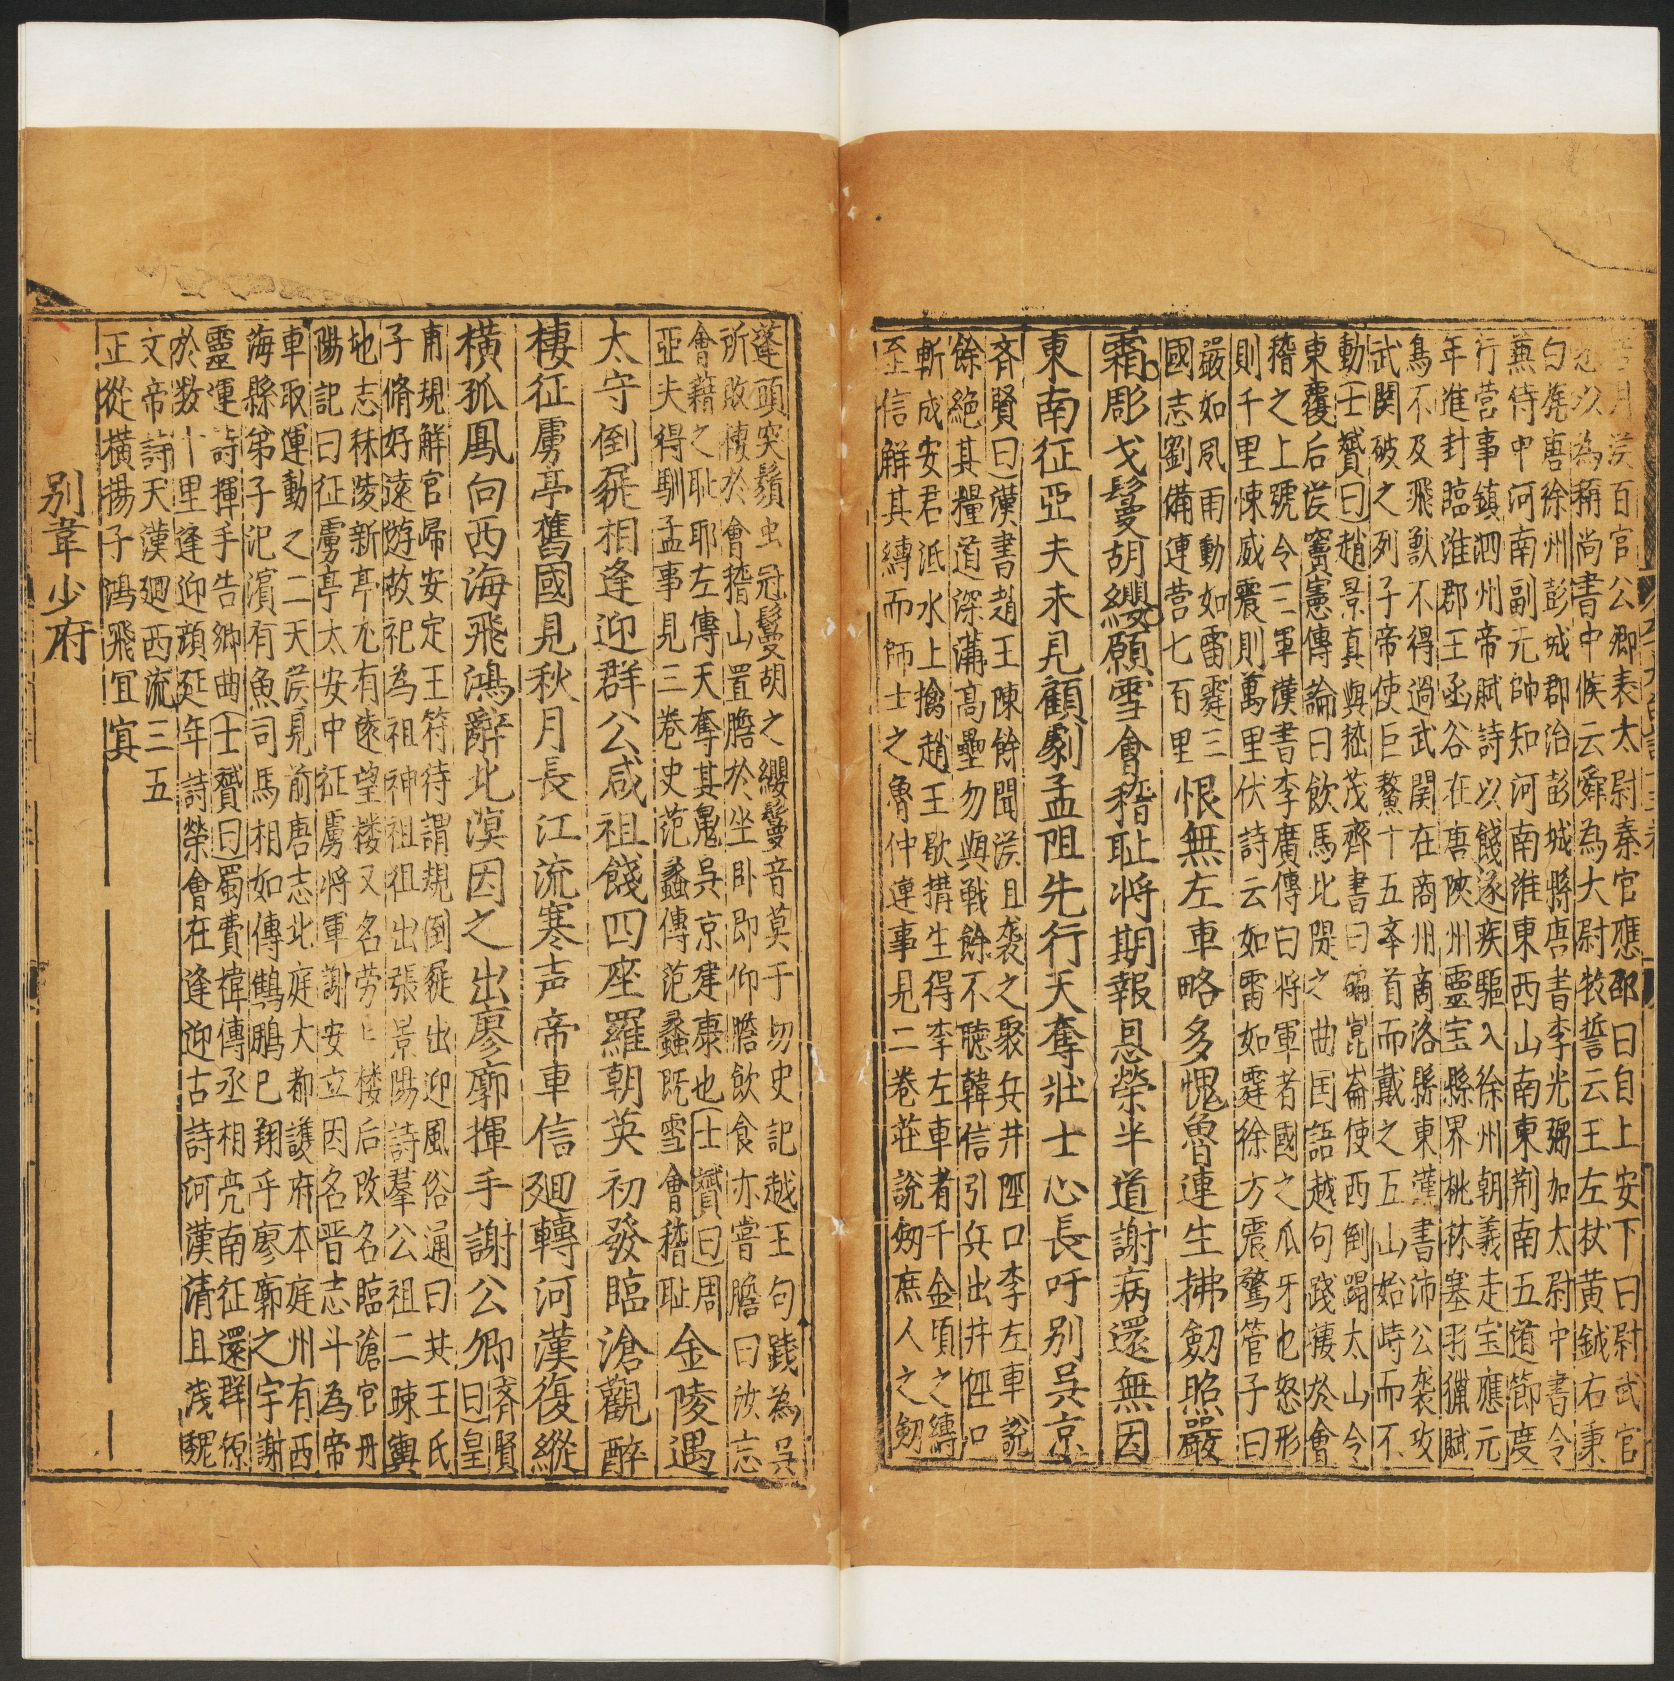 月矦百官公卿表太尉秦官應邵曰自上安下曰尉武官
悉以為稱尚書中候云舜為大尉牧誓云王左杖黃鉞右秉
白旄唐徐州彭城郡治彭城縣唐書李光弼加太尉中書令
兼侍中河南副元帥知河南淮東西山南東荆南五道節度
行營事鎮泗州帝賦詩以餞遂疾驅入徐州朝義走宝應元
年進封臨淮郡王函谷在唐陝州靈宝縣界桃林塞羽獵賦
鳥不及飛獸不得過武関在商州商洛縣東漢書沛公襲攻
武関破之列子帝使巨鰲十五舉首而戴之五山始峙而不
動士贇曰趙景真與嵇茂齊書曰碣崑崙使西倒蹋太山令
東覆后漢竇憲傳論曰飲馬北隄之曲囯語越句踐棲於會
稽之上號令三軍漢書李廣傳曰將軍者國之爪牙也怒形
則千里悚威震則萬里伏詩云如雷如霆徐方震驚管子曰
嚴如風雨動如雷霆三
國志劉備連营七百里
恨無左車略多愧魯連生拂劒照嚴
霜彫戈鬘胡纓願雪會稽耻将期報恩榮半道謝病還無因
東南征亞夫未見顧劇孟阻先行天奪壯士心長吁别吳京
齊賢曰漢書趙王陳餘聞漢且襲之聚兵井陘口李左車説
餘絶其糧道深溝高壘勿與戰餘不聽韓信引兵出井陘口
斬成安君泜水上擒趙王歇搆生得李左車者千金頃之縛
至信解其縛而師士之魯仲連事見二卷莊說劒庶人之劒
蓬頭突鬢虫冠鬘胡之纓鬘音莫于切史記越王句踐為吳
所敗棲於會稽山置膽於坐卧即仰膽飲食亦嘗膽曰汝忘
會藉之耻耶左傳天奪其鬼吳京建康也士贇曰周
亞夫得劇孟事見三卷史范蠡傳范蠡既雪會稽耻
金陵遇
太守倒屣相逢迎群公咸祖餞四座羅朝英初發臨滄觀醉
棲征虜亭舊國見秋月長江流寒声帝車信廻轉河漢復縱
橫孤鳳向西海飛鴻辭北溟因之出廖廓揮手謝公卿
齊賢
曰皇
甫規解官歸安定王符待謂規倒屣出迎風俗通曰共王氏
子脩好遠遊故祀為祖神祖徂出張景陽詩羣公祖二疎輿
地志秣陵新亭尤有遠望楼又名劳楼后改名臨滄官丹
陽記曰征虜亭太安中征虜将軍謝安立因名晋志斗為帝
車取運動之二天漢見前唐志北庭大都護府本庭州有西
海縣弟子汜濵有魚司馬相如傳鷦鵬已翔乎廖廓之宇謝
靈運詩揮手告卿曲士贇曰蜀費褘傳丞相亮南征還群僚
於数十里逢迎顔延年詩榮會在逢迎古詩河漢清且淺魏
文帝詩天漢廻西流三五
正從横揚子鴻飛冝寘
别韋少府